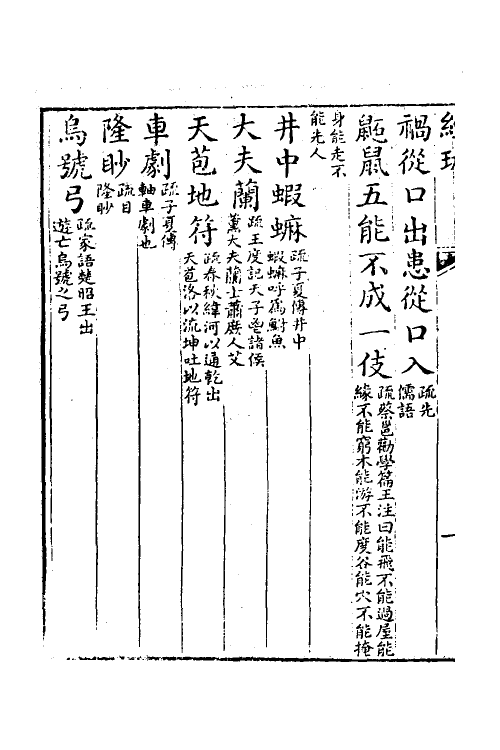 禍從口出患從口入疏先
儒語
鼫鼠五能不成一伎疏蔡邕勸學篇王注曰能飛不能過屋能
緣不能窮木能游不能度谷能穴不能掩
身能走不
能先人
井中蝦䗫疏子夏傳井中
蝦䗫呼爲鮒魚
大夫蘭疏王度記天子鬯諸侯
薰大夫蘭士蕭庶人艾
天苞地符疏春秋緯河以通乾出
天苞洛以流坤吐地符
車劇疏子夏傳
軸車劇也
隆眇疏目
隆眇
烏號弓疏家語楚昭王出
遊亡烏號之弓
一